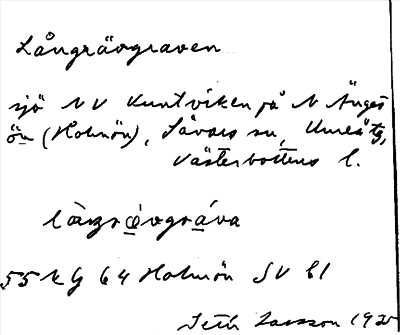 Långrävgraven
sjö NV Kuntviken på N Änges
ön (Holmön), Sävars sn, Umeå tg,
Västerbottens l.
làŋrǽvgráva
55 kg 64 Holmön SV bl
Seth Larsson 192